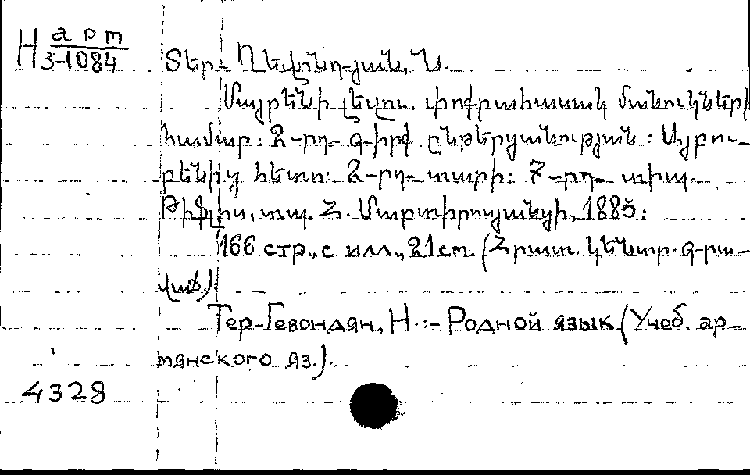 Н арт
3-1084
Տեր-Ղևոնդյան, Ն.
Մայրենի լեզու. փոքրահասակ մանուկների
համար: 2-րդ գիրք ընթերցանության: Այբու-
բենից հետո: 2-րդ տարի: 7-րդ տիպ.
Թիֆլիս, տպ. Հ. Մարտիրոսյանցի, 1885:
166 стр., с илл., 21см. (Հրատ. կենտր. գրա-
վաճ.).
Тер-Гевондян, Н.:- Родной язык (Учеб. ар-
мянского яз.).
4328